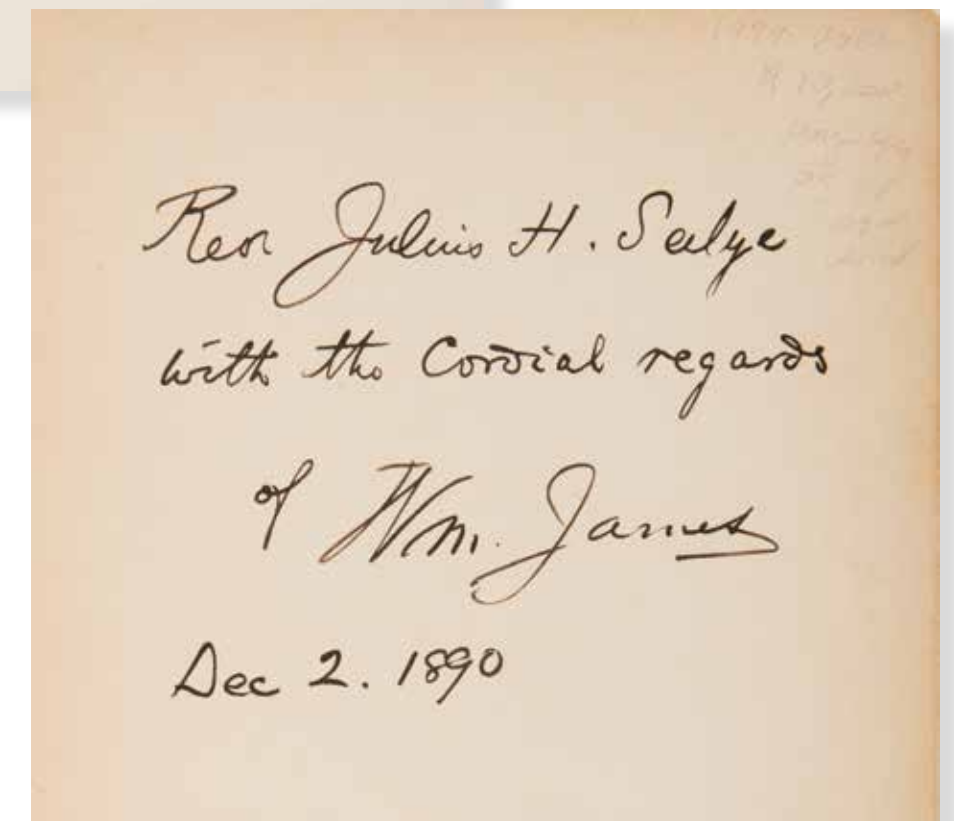 Rev Julius H. Seelye
with the cordial regards
of Wm. James
Dec 2. 1890